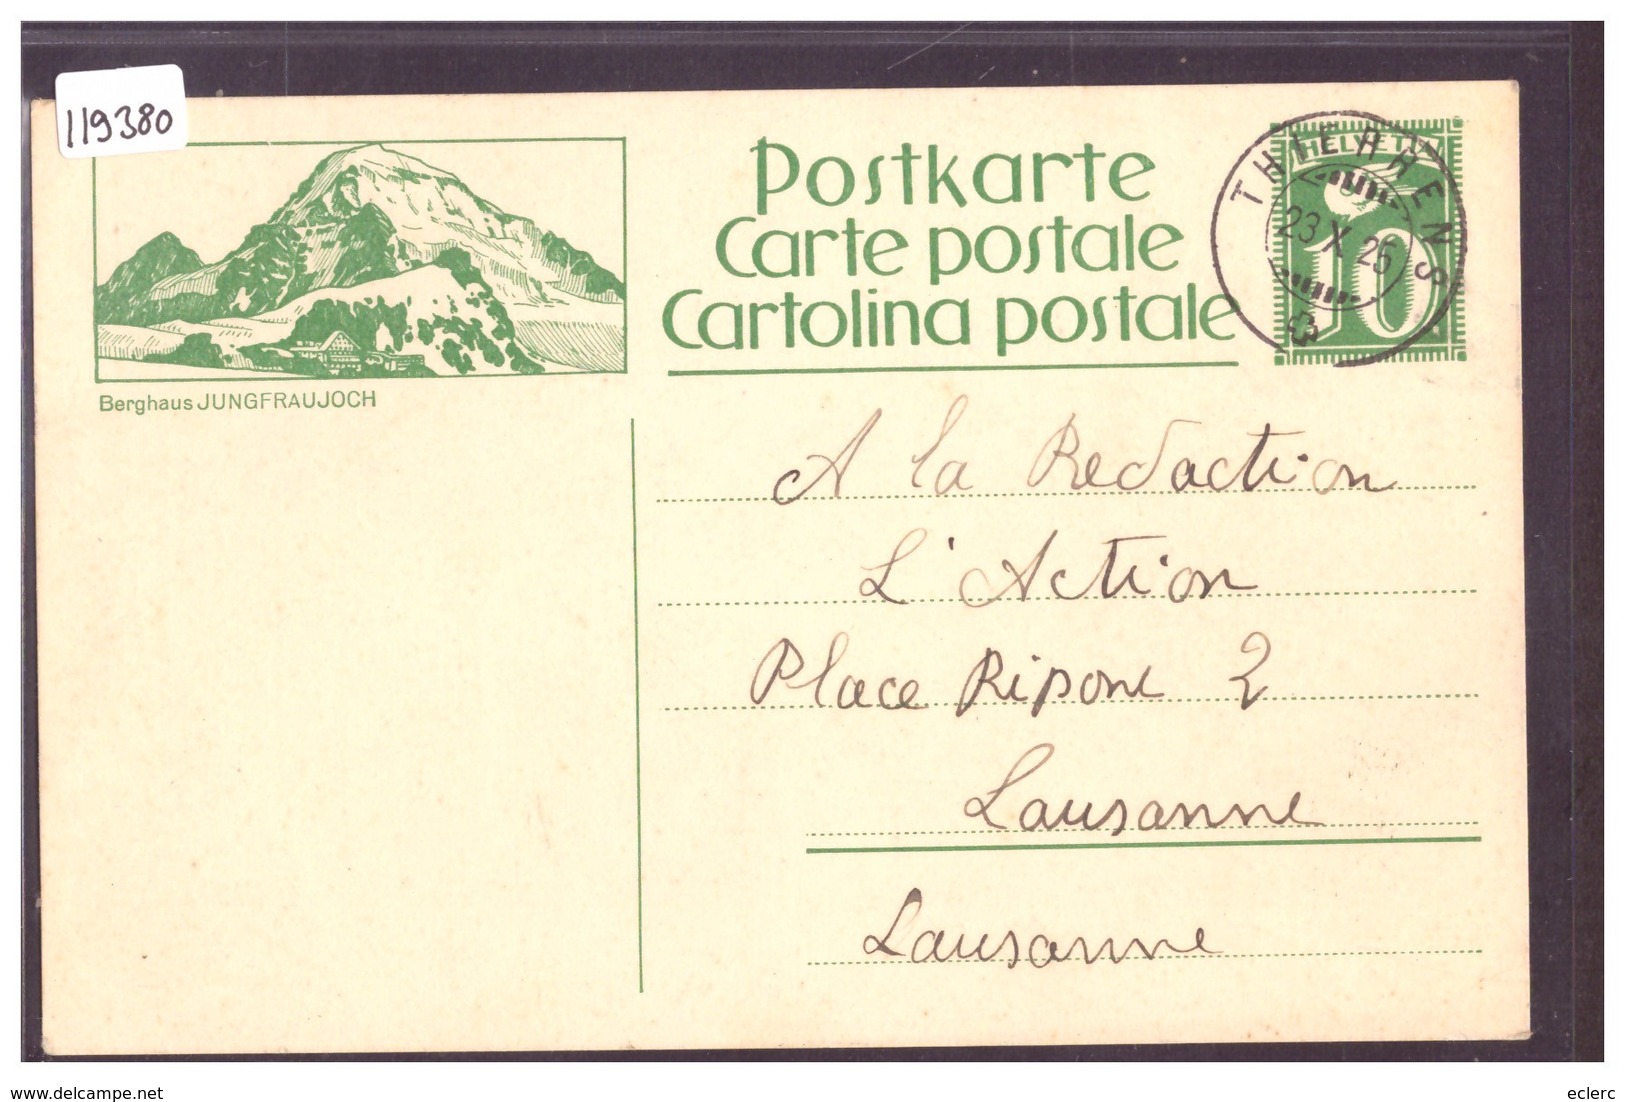 119380
Postkarte
Carte postale
Cartolina postale
HELVETIA
10
THIERRENS
23 X 25
Berghaus JUNGFRAUJOCH
A la Redaction
L'Action
Place Ripone 2
Lausanne
Lausanne
www.delcampe.net
eclerc